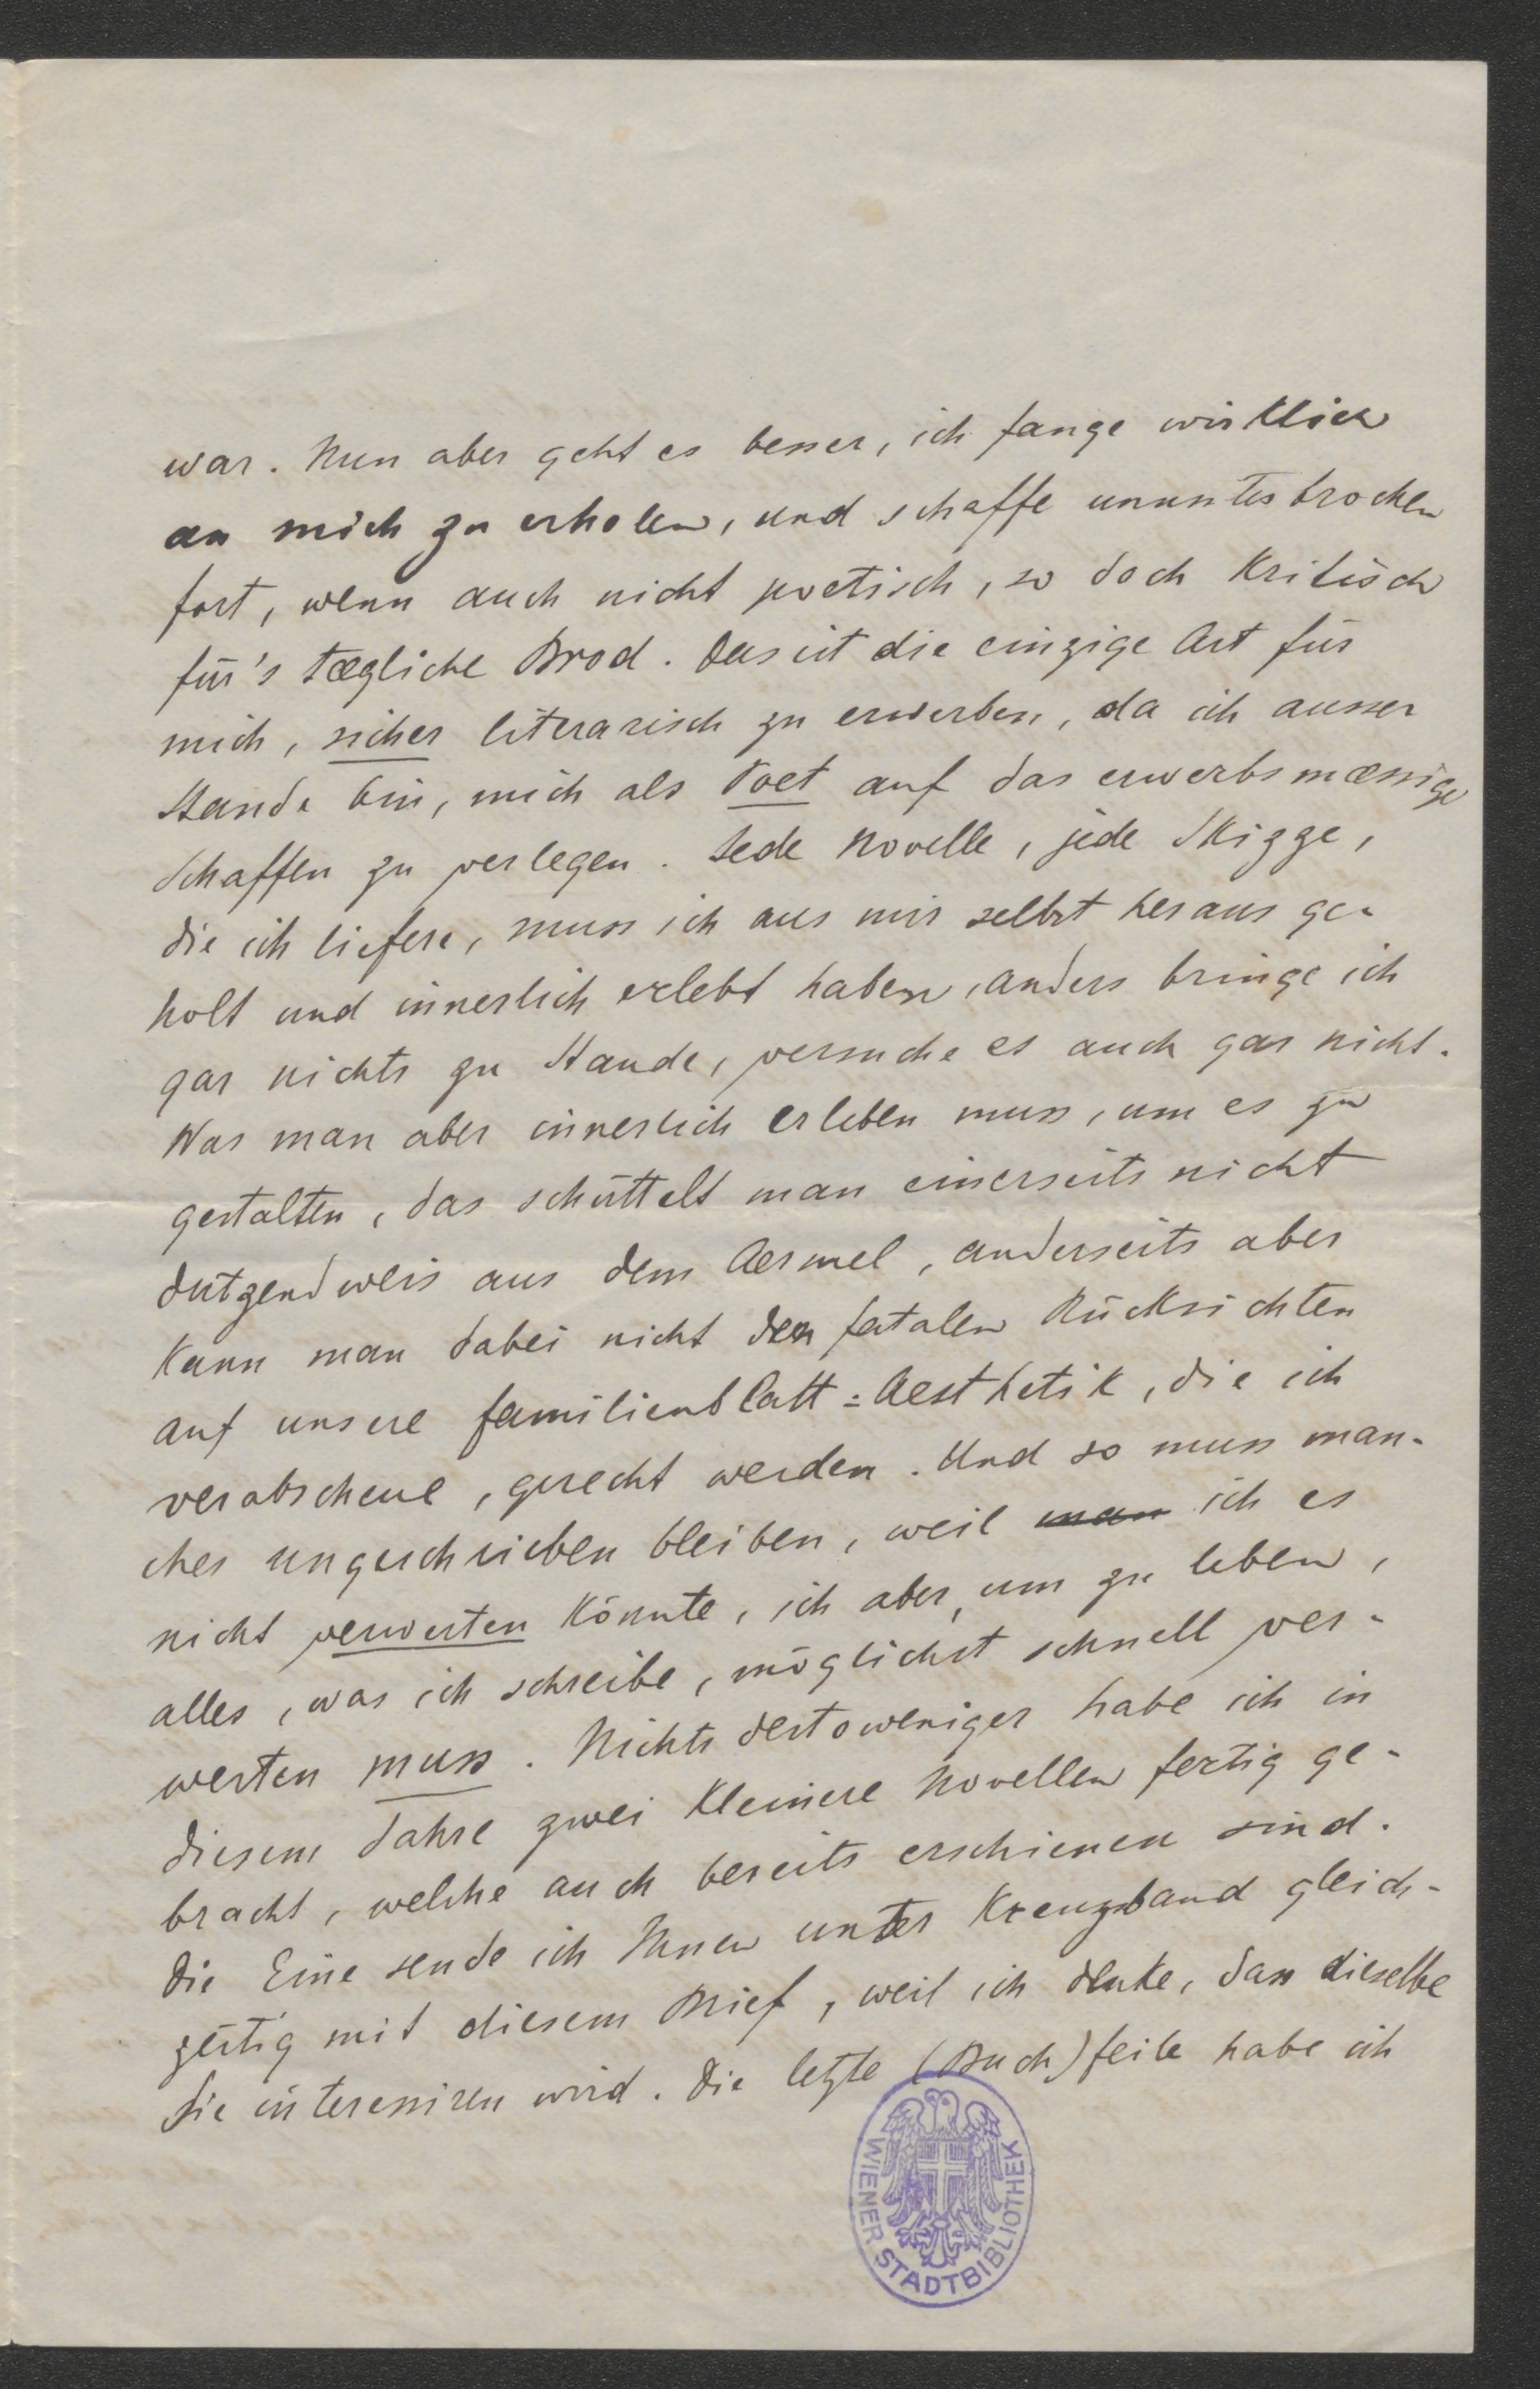 war. Nun aber geht es besser, ich fange wirklich
an mich zu erholen, und schaffe ununterbrochen
fort, wenn auch nicht poetisch, so doch kritisch
für's tægliche Brod. Das ist die einzige Art für
mich, sicher literarisch zu erwerben, da ich ausser
Stande bin, mich als Poet auf das erwerbsmæssige
Schaffen zu verlegen. Jede Novelle, jede Skizze,
die ich liefere, muss ich aus mir selbst heraus ge-
holt und innerlich erlebt haben, anders bringe ich
gar nichts zu Stande, versuche es auch gar nicht.
Was man aber innerlich erleben muss, um es zu
gestalten, das schüttelt man einerseits nicht
dutzendweis aus dem Aermel, anderseits aber
kann man dabei nicht den fatalen Rücksichten
auf unsere Familienblatt=Aesthetik, die ich
verabscheue, gerecht werden. Und so muss man-
ches ungeschrieben bleiben, weil man ich es
nicht verwerten könnte, ich aber, um zu leben,
alles, was ich schreibe, möglichst schnell ver-
werten muss. Nichts destoweniger habe ich in
diesem Jahre zwei kleinere Novellen fertig ge-
bracht, welche auch bereits erschienen sind.
Die Eine sende ich Ihnen unter Kreuzband gleich-
zeitig mit diesem Brief, weil ich denke, dass dieselbe
Sie interessiren wird. Die letzte (Buch)feile habe ich
WIENER STADTBIBLIOTHEK